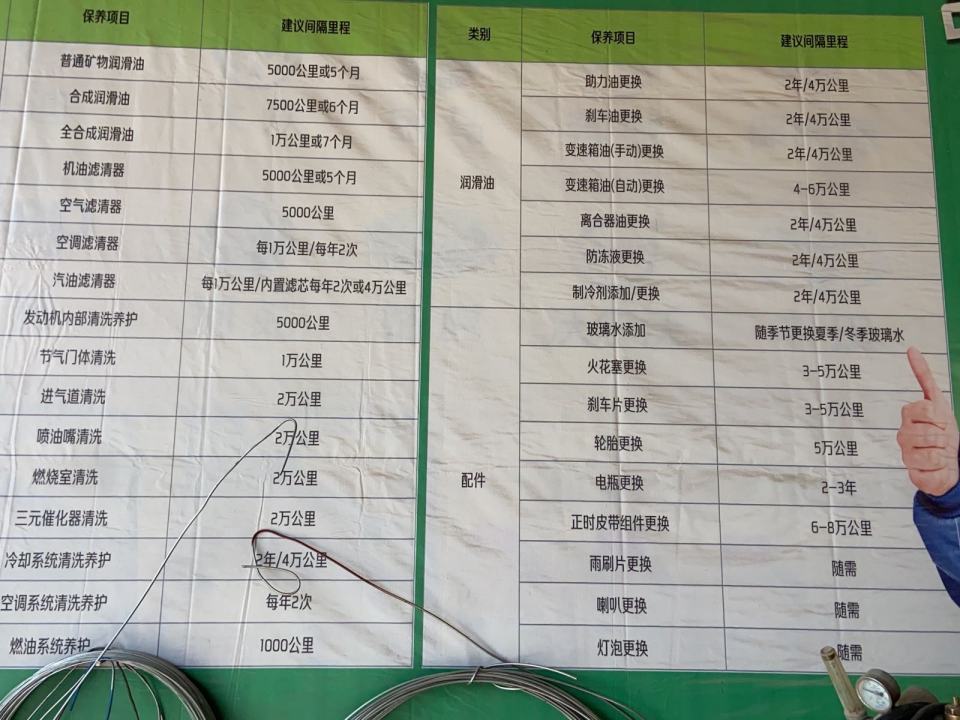 保养项目 建议间隔里程
普通矿物润滑油 5000公里或5个月
合成润滑油 7500公里或6个月
全合成润滑油 1万公里或7个月
机油滤清器 5000公里或5个月
空气滤清器 5000公里
空调滤清器 每1万公里/每年2次
汽油滤清器 每1万公里/内置滤芯每年2次或4万公里
发动机内部清洗养护 5000公里
节气门体清洗 1万公里
进气道清洗 2万公里
喷油嘴清洗 2万公里
燃烧室清洗 2万公里
三元催化器清洗 2万公里
冷却系统清洗养护 2年/4万公里
空调系统清洗养护 每年2次
燃油系统养护 1000公里
类别 保养项目 建议间隔里程
润滑油
助力油更换 2年/4万公里
刹车油更换 2年/4万公里
变速箱油(手动)更换 2年/4万公里
变速箱油(自动)更换 4-6万公里
离合器油更换 2年/4万公里
防冻液更换 2年/4万公里
制冷剂添加/更换 2年/4万公里
配件
玻璃水添加 随季节更换夏季/冬季玻璃水
火花塞更换 3-5万公里
刹车片更换 3-5万公里
轮胎更换 5万公里
电瓶更换 2-3年
正时皮带组件更换 6-8万公里
雨刷片更换 随需
喇叭更换 随需
灯泡更换 随需